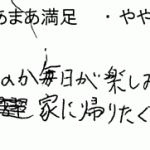 あまあ満足 ・やや
のか毎日が楽しみ
家に帰りたく